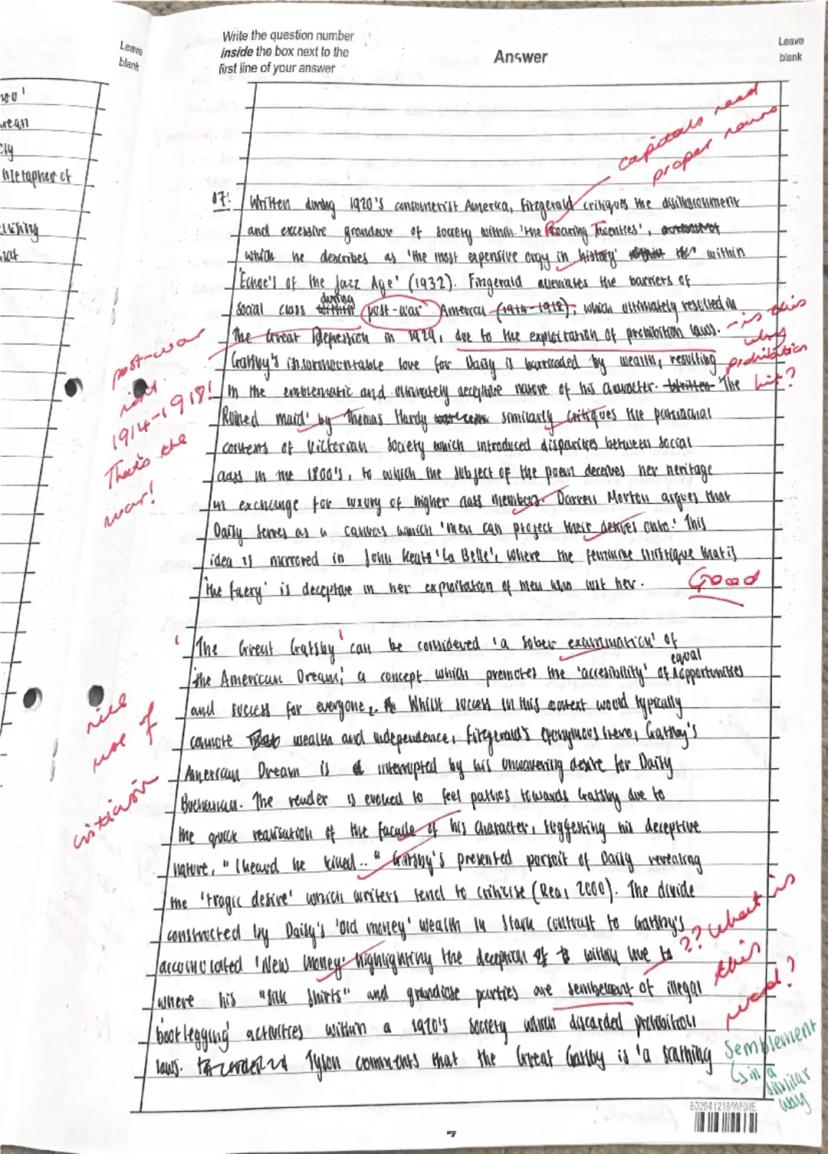 Leave
blank
Write the question number
inside the box next to the
first line of your answer
Answer
Leave
blank
ean
metapher of
capitals need
proper nouns
17. Written during 1920's consumerist America, Fitzgerald critiques the disillusionment
and excessive grandeur of society within 'the Roaring Twenties',
which he describes as 'the most expensive orgy in history' within
'Echo's of the Jazz Age' (1932). Fitzgerald the barriers of
social class during post-war America (1914-1918), which ultimately resulted in
The Great Depression in 1929, due to the exploitation of prohibition laws.
- is this
why
prohibition
hit?
post-war
not
1914-1918!
That's the
war!
Gatsby's insurmountable love for Daisy is barricaded by wealth, resulting
in the emblematic and ultimately deceptive nature of his character. 'The
Ruined maid' by Thomas Hardy similarly critiques the patriarchal
contexts of Victorian society which introduced disparities between social
class in the 1800's, to which the subject of the poem deceives her heritage
in exchange for luxury of higher class members. Darren Morton argues that
Daisy serves as a canvas which 'men can project their desires onto.' This
idea is mirrored in John Keats 'La Belle', where the feminine mistique that is
'the faery' is deceptive in her exploitation of men who lust her.
Good
'The Great Gatsby' can be considered 'a sober examination' of
the American Dream; a concept which promotes the 'accesibility' of equal opportunities
and success for everyone. Whilst success in this context would typically
connote wealth and independence, Fitzgerald's eponymous hero, Gatsby's
American Dream is interrupted by his unwavering desire for Daisy
Buchanan. The reader is evoked to feel pathos towards Gatsby due to
the quick realisation of the facade of his character, suggesting his deceptive
nature, "I heard he killed.." Gatsby's presented pursuit of Daisy revealing
the 'tragic desire' which writers tend to criticise (Rea, 2000). The divide
constructed by Daisy's 'old money' wealth in stark contrast to Gatsby's
accumulated 'New Money' highlighting the deception love to
where his "silk shirts" and grandiose parties are semblement of illegal
'bootlegging' activities within a 1920's society which discarded prohibition
laws. Tylon comments that the Great Gatsby is 'a scathing
nice
use of
criticism
?? What is
this
word?
Semblement
↳ in a
similar
way
7